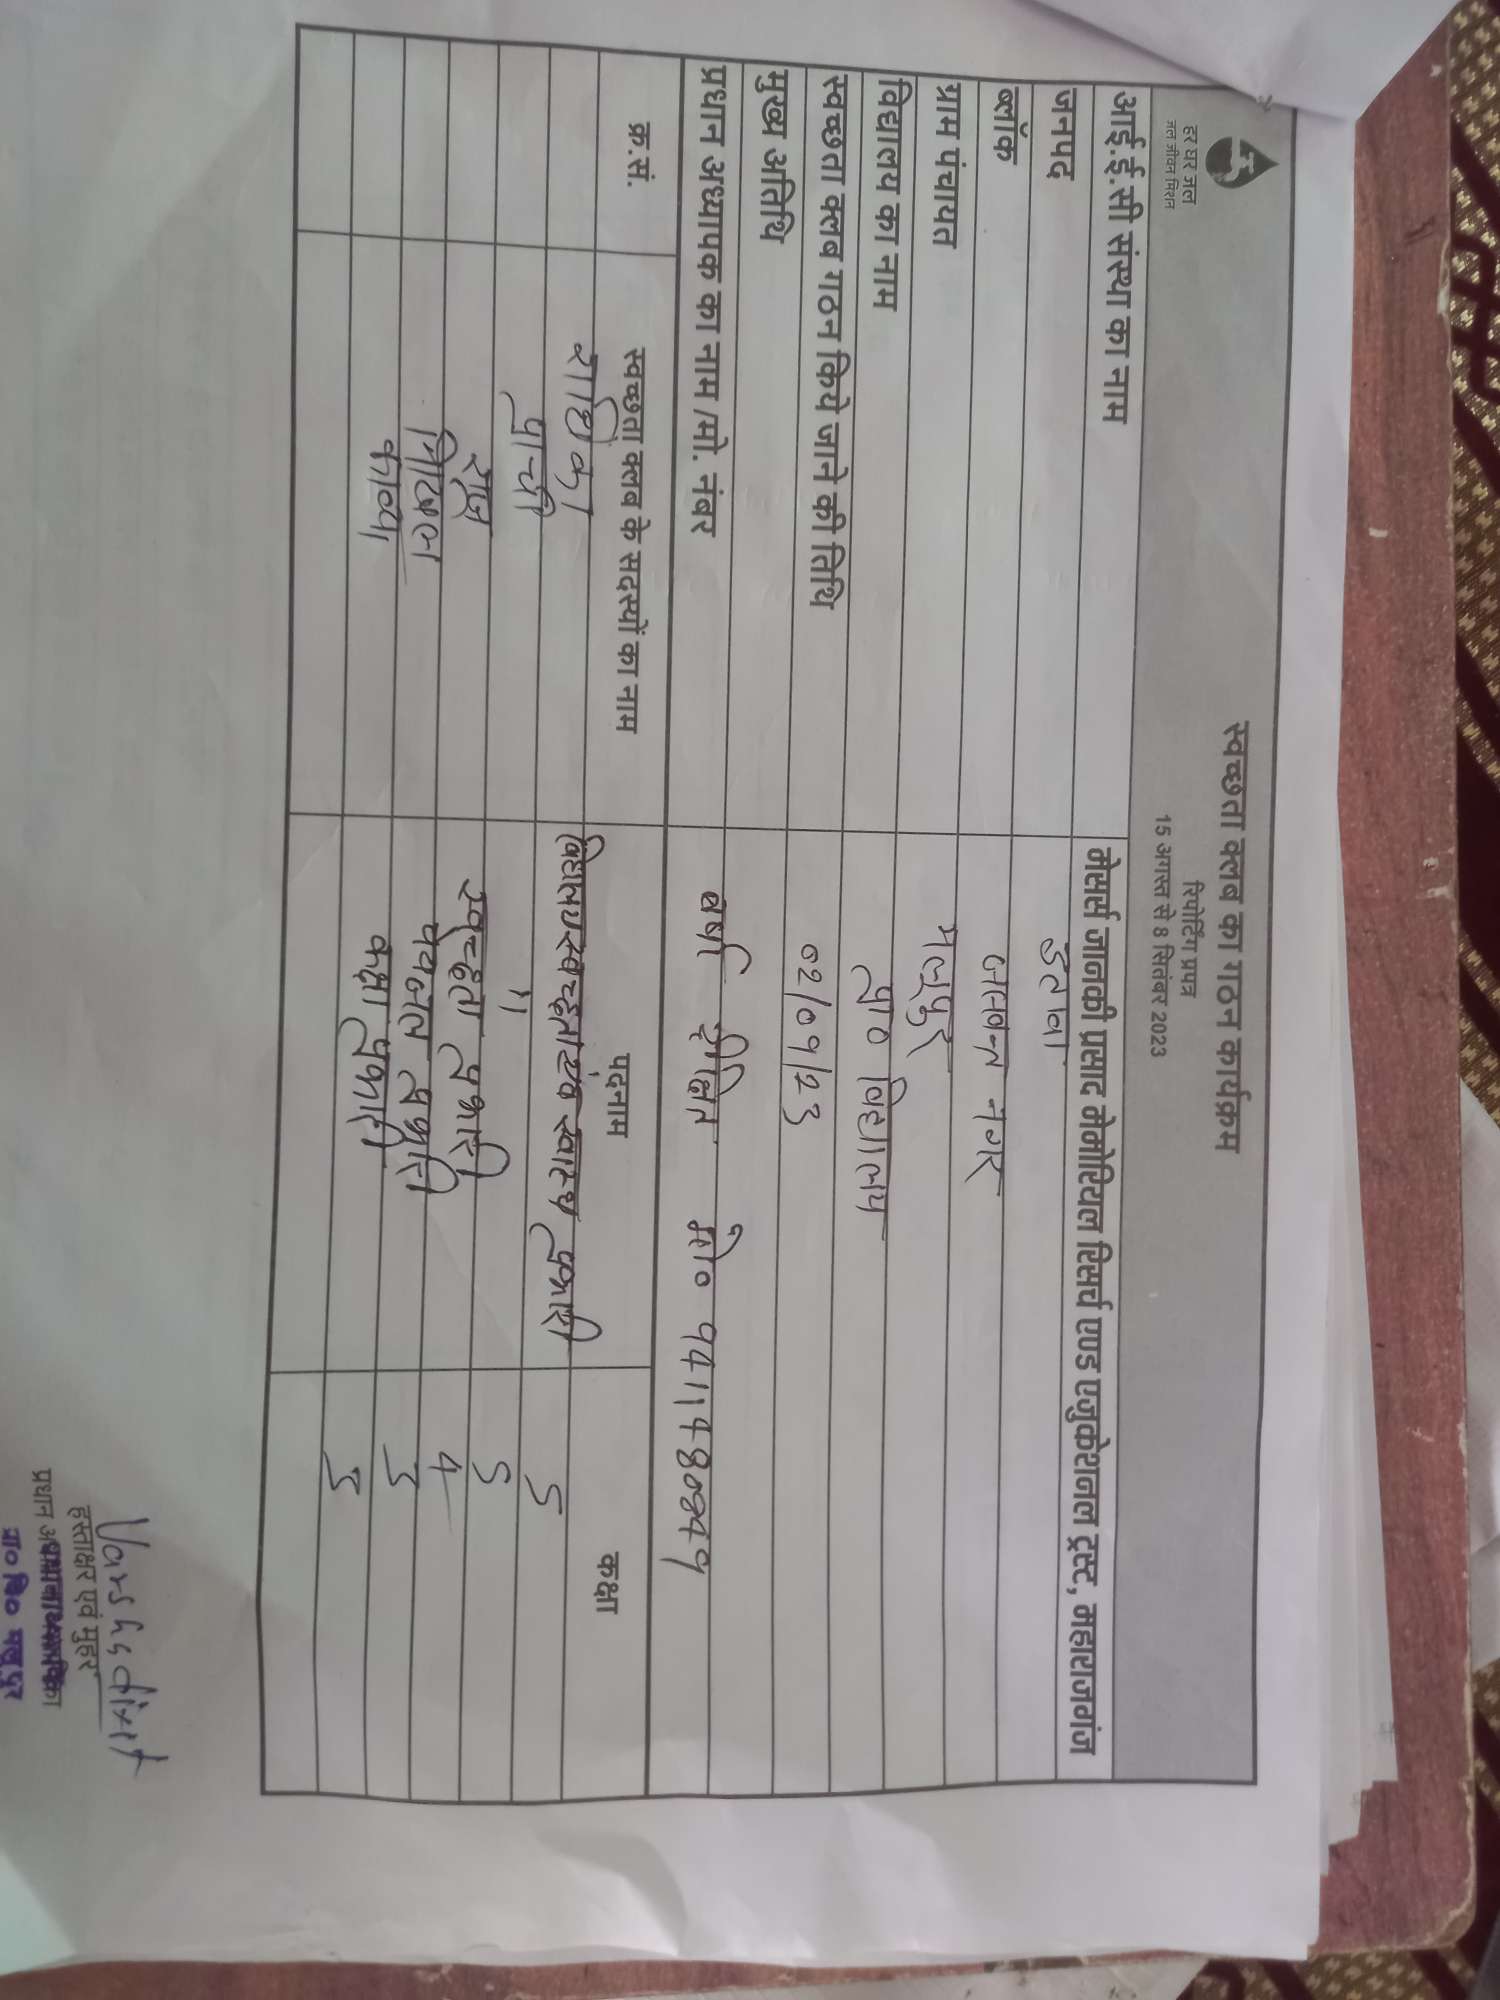 हर घर जल
जल जीवन मिशन
स्वच्छता क्लब का गठन कार्यक्रम
रिपोर्टिंग प्रपत्र
15 अगस्त से 8 सितंबर 2023
आई.ई.सी संस्था का नाम मेसर्स जानकी प्रसाद मेमोरियल रिसर्च एण्ड एजुकेशनल ट्रस्ट, महाराजगंज
जनपद इटावा
ब्लॉक जसवन्त नगर
ग्राम पंचायत मलूपुर
विद्यालय का नाम प्रा० विद्यालय
स्वच्छता क्लब गठन किये जाने की तिथि 02/09/23
मुख्य अतिथि
प्रधान अध्यापक का नाम /मो. नंबर वर्षा दीक्षित मो०
क्र.सं. स्वच्छता क्लब के सदस्यों का नाम पदनाम कक्षा
राधिका स्वच्छता एवं स्वास्थ प्रभारी 5
प्राची " 5
राज स्वच्छता प्रभारी 4
पेयजल प्रभारी 3
काव्या कक्षा प्रभारी 3
Varsha dixit
हस्ताक्षर एवं मुहर
प्रधान
प्रा० वि० मलूपुर